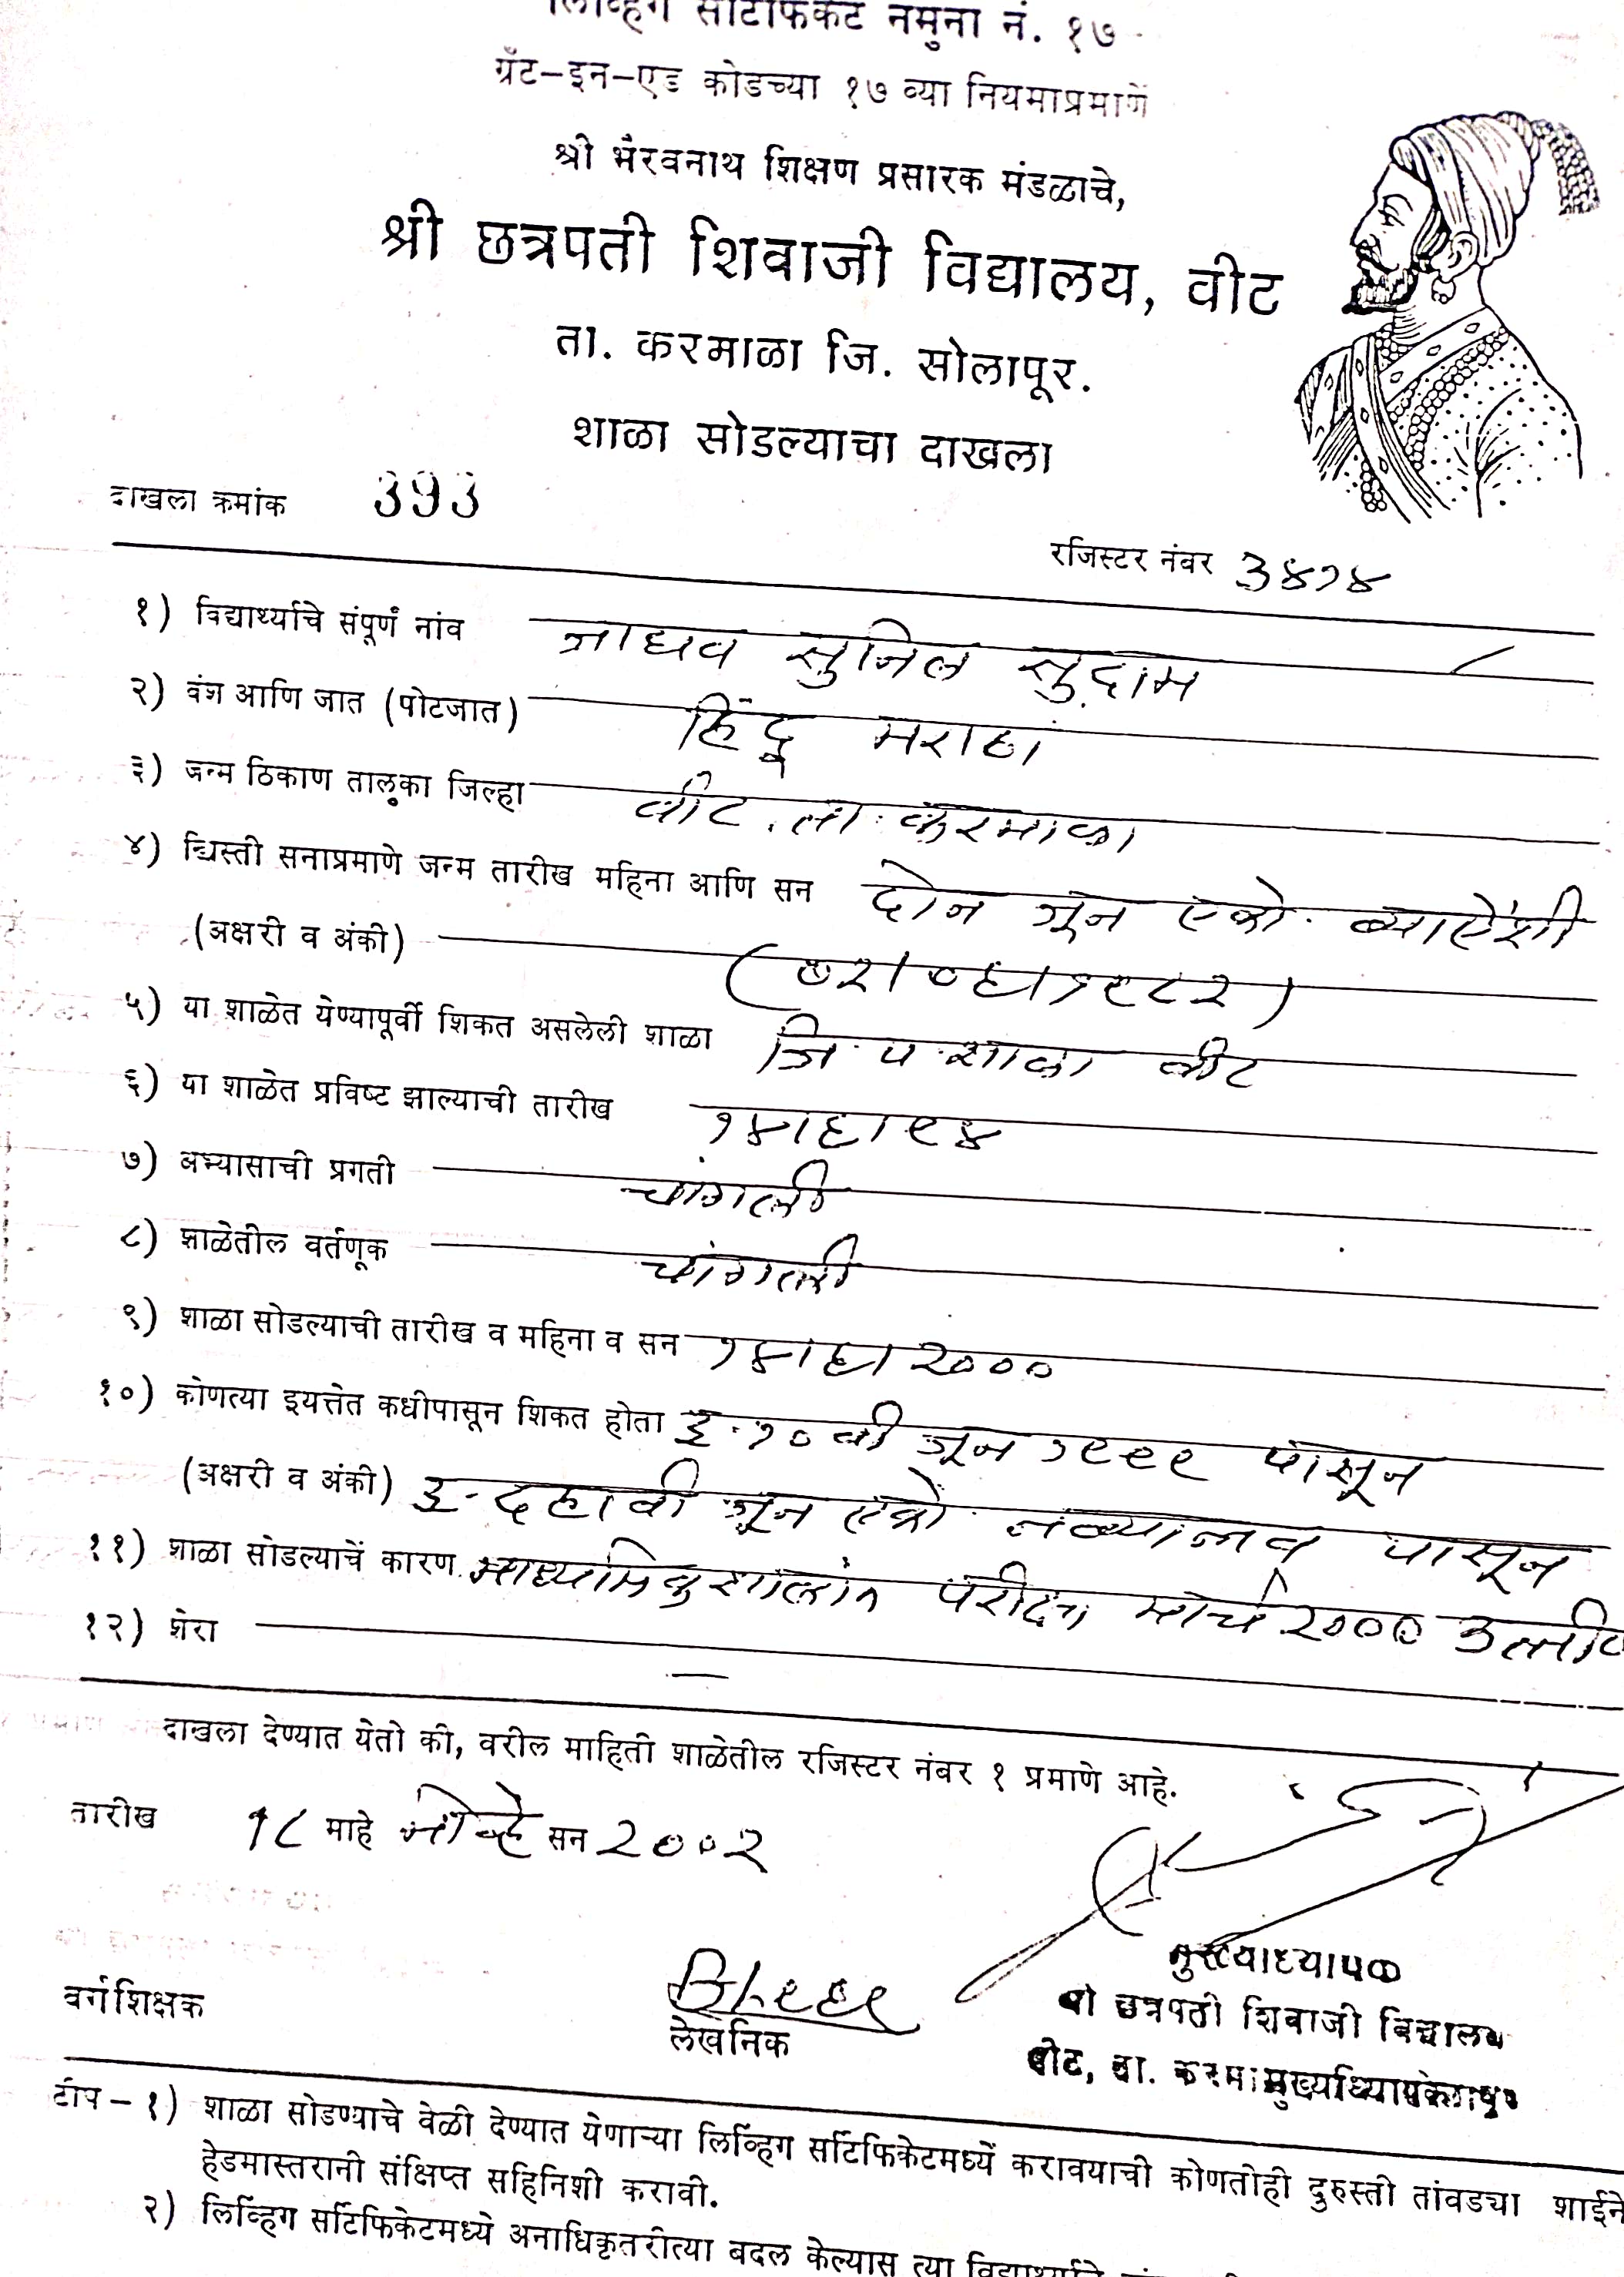 लिव्हिंग सर्टिफिकेट नमुना नं. १७
ग्रँट-इन-एड कोडच्या १७ व्या नियमाप्रमाणें
श्री भैरवनाथ शिक्षण प्रसारक मंडळाचे,
श्री छत्रपती शिवाजी विद्यालय, वीट
ता. करमाळा जि. सोलापूर.
शाळा सोडल्याचा दाखला
दाखला क्रमांक 393
रजिस्टर नंबर ३४१४
१) विद्यार्थ्याचे संपूर्ण नांव जाधव सुनिल सुदाम
२) वंश आणि जात (पोटजात) हिंदू मराठा
३) जन्म ठिकाण तालुका जिल्हा वीट. ता. करमाळा
४) ख्रिस्ती सनाप्रमाणे जन्म तारीख महिना आणि सन दोन जून एको. ब्याऐंशी
(अक्षरी व अंकी) (०२।०६।१९८२)
५) या शाळेत येण्यापूर्वी शिकत असलेली शाळा जि. प. शाळा वीट
६) या शाळेत प्रविष्ट झाल्याची तारीख १४।६।९४
७) अभ्यासाची प्रगती चांगली
८) शाळेतील वर्तणूक चांगली
९) शाळा सोडल्याची तारीख व महिना व सन १४।६।२०००
१०) कोणत्या इयत्तेत कधीपासून शिकत होता इ. १० वी जून १९९९ पासून
(अक्षरी व अंकी) इ. दहावी जून एको. नव्याण्णव पासून
११) शाळा सोडल्याचें कारण माध्यमिक शालांत परीक्षा मार्च २००० उत्तीर्ण
१२) शेरा —
दाखला देण्यात येतो की, वरील माहिती शाळेतील रजिस्टर नंबर १ प्रमाणे आहे.
तारीख १८ माहे नोव्हे सन २००२
मुख्याध्यापक
श्री छत्रपती शिवाजी विद्यालय
वर्गशिक्षक लेखनिक
वीट, ता. करमा मुख्याध्यापक
टीप - १) शाळा सोडण्याचे वेळी देण्यात येणाऱ्या लिव्हिंग सर्टिफिकेटमध्यें करावयाची कोणतोही दुरुस्ती तांवड्या शाईने
हेडमास्तरानी संक्षिप्त सहिनिशी करावी.
२) लिव्हिंग सर्टिफिकेटमध्ये अनाधिकृतरीत्या बदल केल्यास त्या विद्यार्थ्याचे